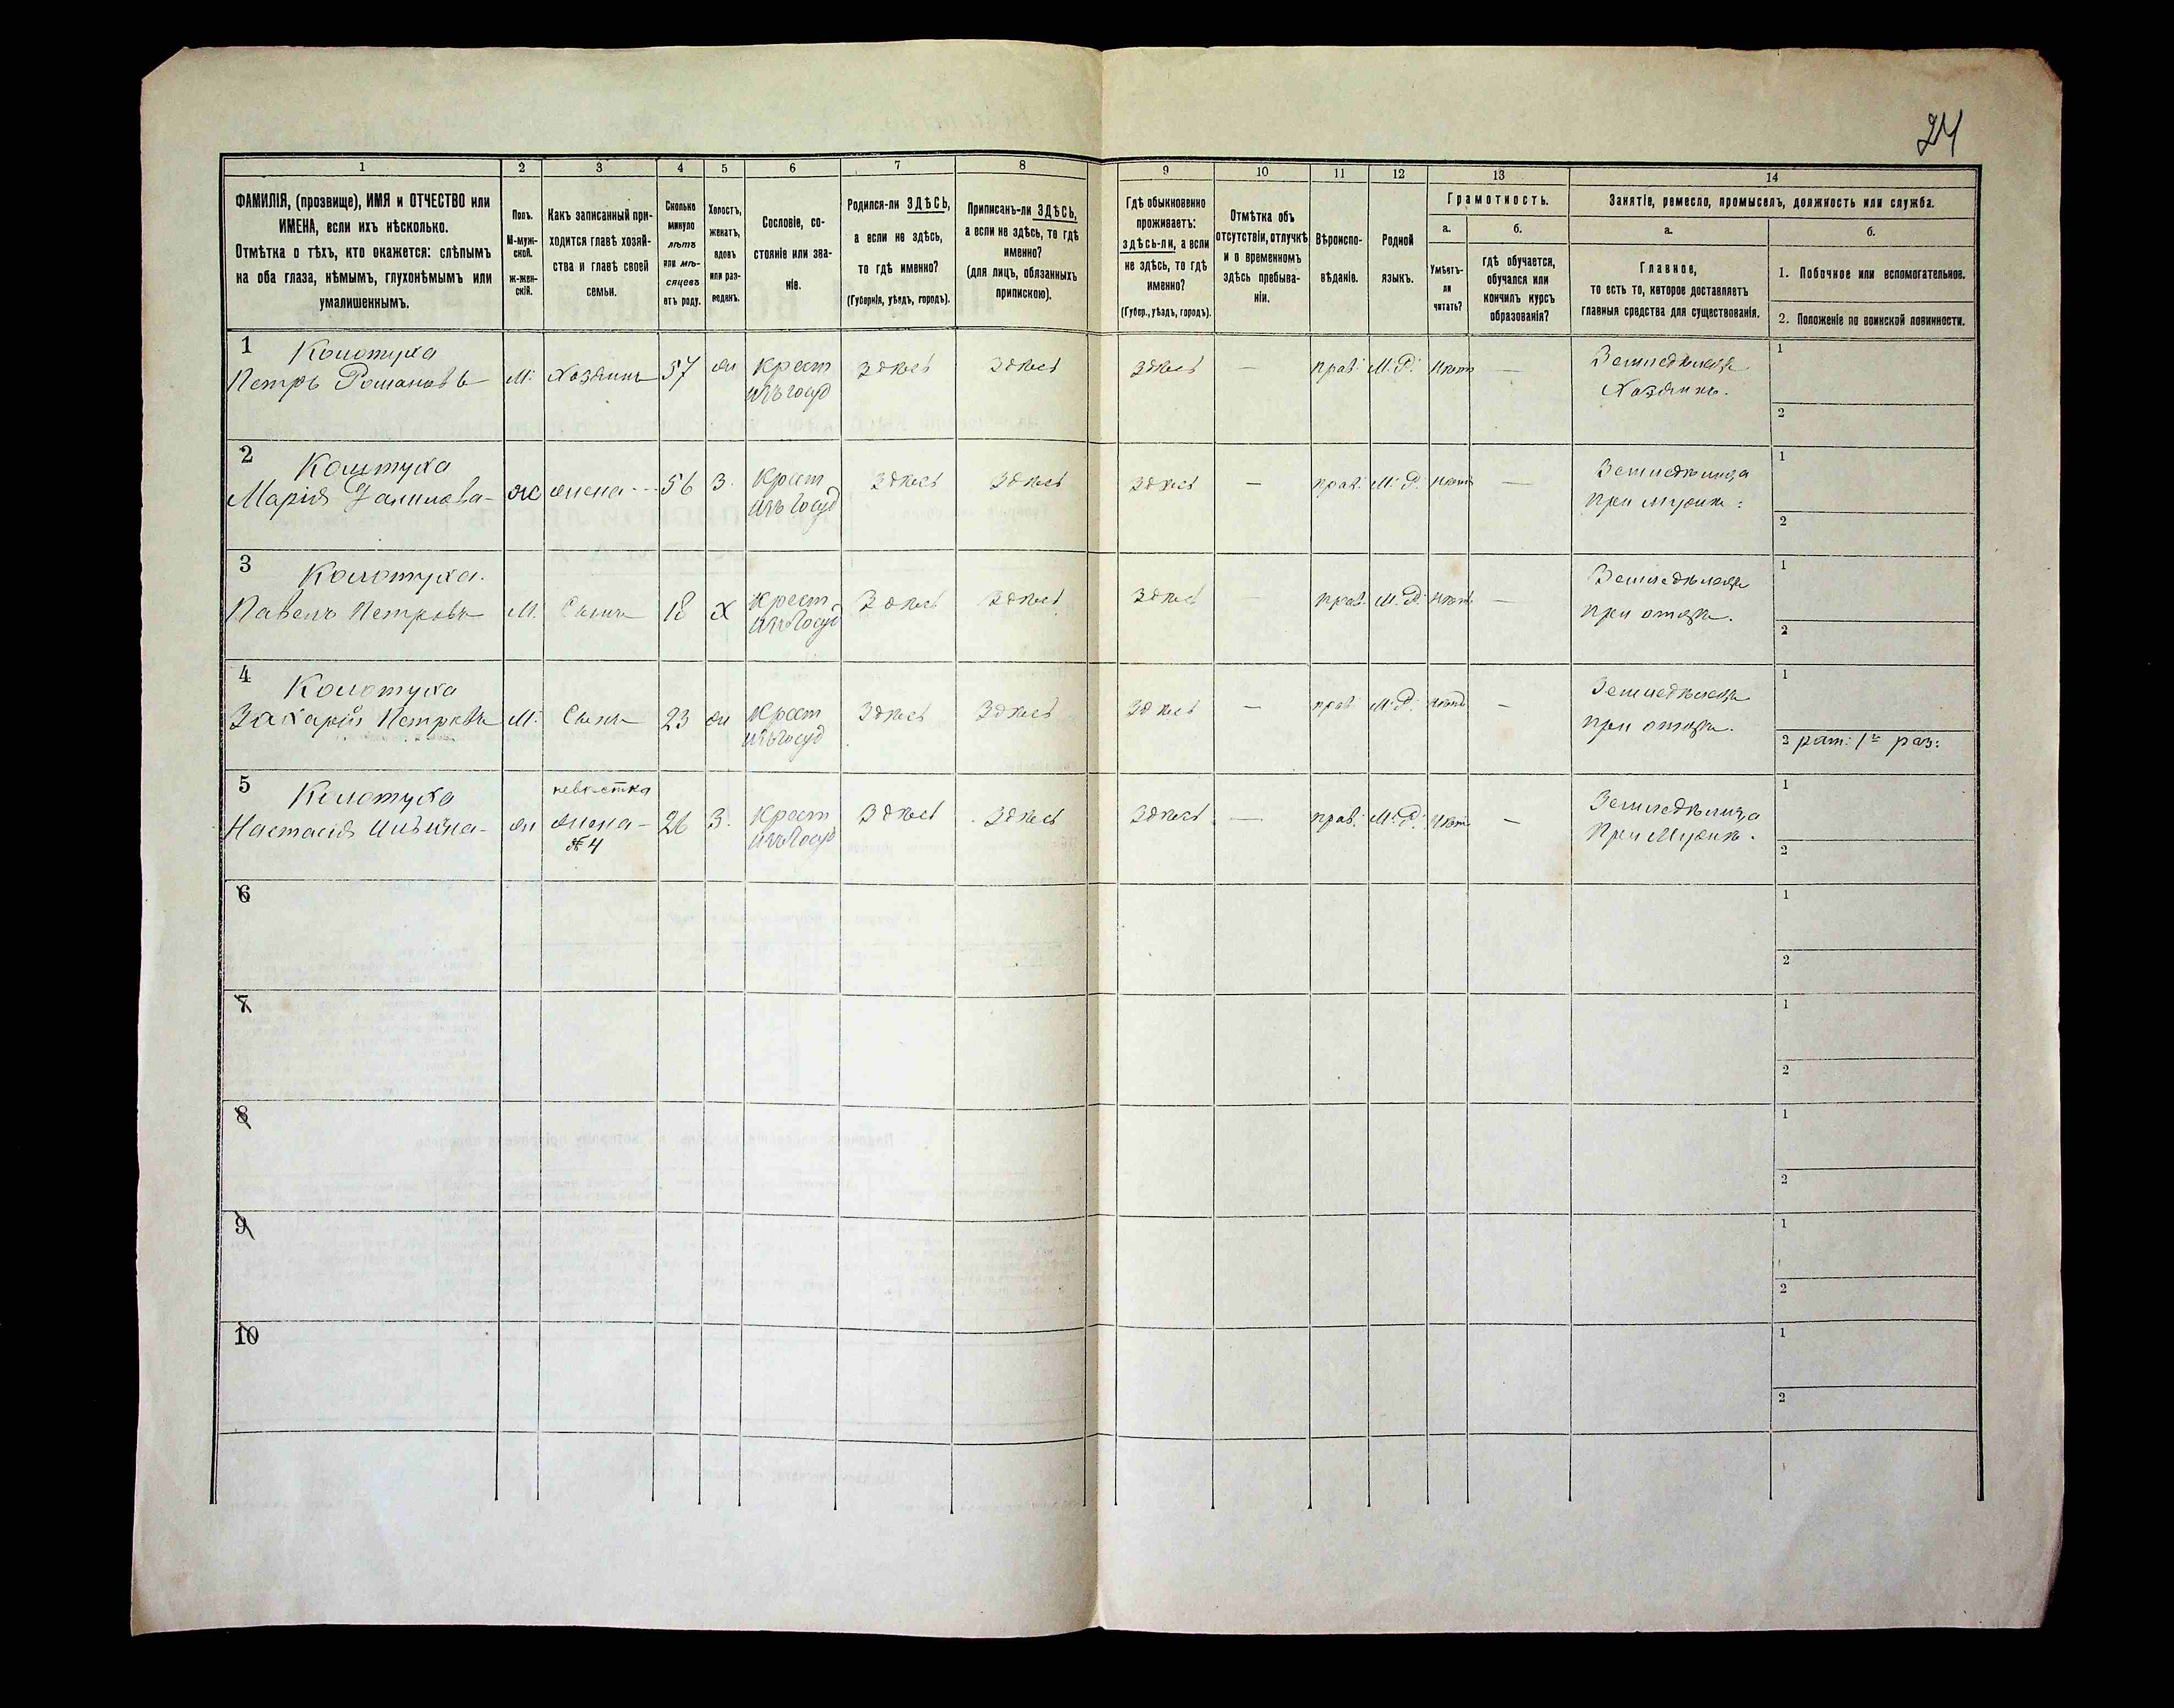 24
1 2 3 4 5 6 7 8 9 10 11 12 13 14
ФАМИЛІЯ, (прозвище), ИМЯ и ОТЧЕСТВО или
ИМЕНА, если ихъ нѣсколько.
Отмѣтка о тѣхъ, кто окажется: слѣпымъ
на оба глаза, нѣмымъ, глухонѣмымъ или
умалишеннымъ.
Полъ.
М-муж-
ской.
ж-жен-
скій.
Какъ записанный при-
ходится главѣ хозяй-
ства и главѣ своей
семьи.
Сколько
минуло
лѣтъ
или мѣ-
сяцевъ
отъ роду.
Холостъ,
женатъ,
вдовъ
или раз-
веденъ.
Сословіе, со-
стояніе или зва-
ніе.
Родился-ли ЗДѢСЬ,
а если не здѣсь,
то гдѣ именно?
(Губернія, уѣздъ, городъ).
Приписанъ-ли ЗДѢСЬ,
а если не здѣсь, то гдѣ
именно?
(для лицъ, обязанныхъ
припискою).
Гдѣ обыкновенно
проживаетъ:
здѣсь-ли, а если
не здѣсь, то гдѣ
именно?
(Губер., уѣздъ, городъ).
Отмѣтка объ
отсутствіи, отлучкѣ
и о временномъ
здѣсь пребыва-
ніи.
Вѣроиспо-
вѣданіе.
Родной
языкъ.
Грамотность.
а.
Умѣетъ-
ли
читать?
б.
гдѣ обучается,
обучался или
кончилъ курсъ
образованія?
Занятіе, ремесло, промыселъ, должность или служба.
а.
Главное,
то есть то, которое доставляетъ
главныя средства для существованія.
б.
1. Побочное или вспомогательное.
2. Положеніе по воинской повинности.
1 Колотуха
Петръ Романовъ М. Хозяинъ 57 ж крест здѣсь здѣсь здѣсь — прав. М.Р. нѣтъ — Земледѣлецъ
изъ госуд Хозяинъ.
1
2
2 Колотуха
Марія Данилова ж жена 56 З. крест здѣсь здѣсь здѣсь — прав. М.Р. нѣтъ — Земледѣлица
изъ госуд при мужѣ.
1
2
3 Колотуха.
Павелъ Петровъ М. Сынъ 18 х крест здѣсь здѣсь здѣсь — прав. М.Р. нѣтъ — Земледѣлецъ
изъ госуд при отцѣ.
1
2
4 Колотуха
Захарій Петровъ М. Сынъ 23 ж крест здѣсь здѣсь здѣсь — прав. М.Р. нѣтъ — Земледѣлецъ
изъ госуд при отцѣ.
1
2 рат: 1го раз:
5 Колотуха невѣстка
Настасія ж жена 26 З. крест здѣсь здѣсь здѣсь — прав. М.Р. нѣтъ — Земледѣлица
№ 4 изъ госуд при мужѣ.
1
2
6
1
2
7
1
2
8
1
2
9
1
2
10
1
2